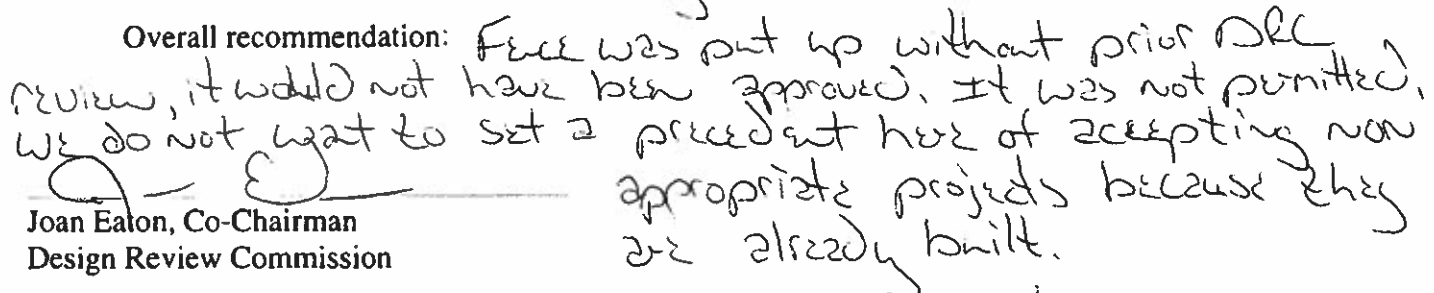 Overall recommendation: Fence was put up without prior DRC
review, it would not have been approved. It was not permitted.
We do not want to set a precedent here of accepting non
appropriate projects because they
are already built.
Joan Eaton, Co-Chairman
Design Review Commission